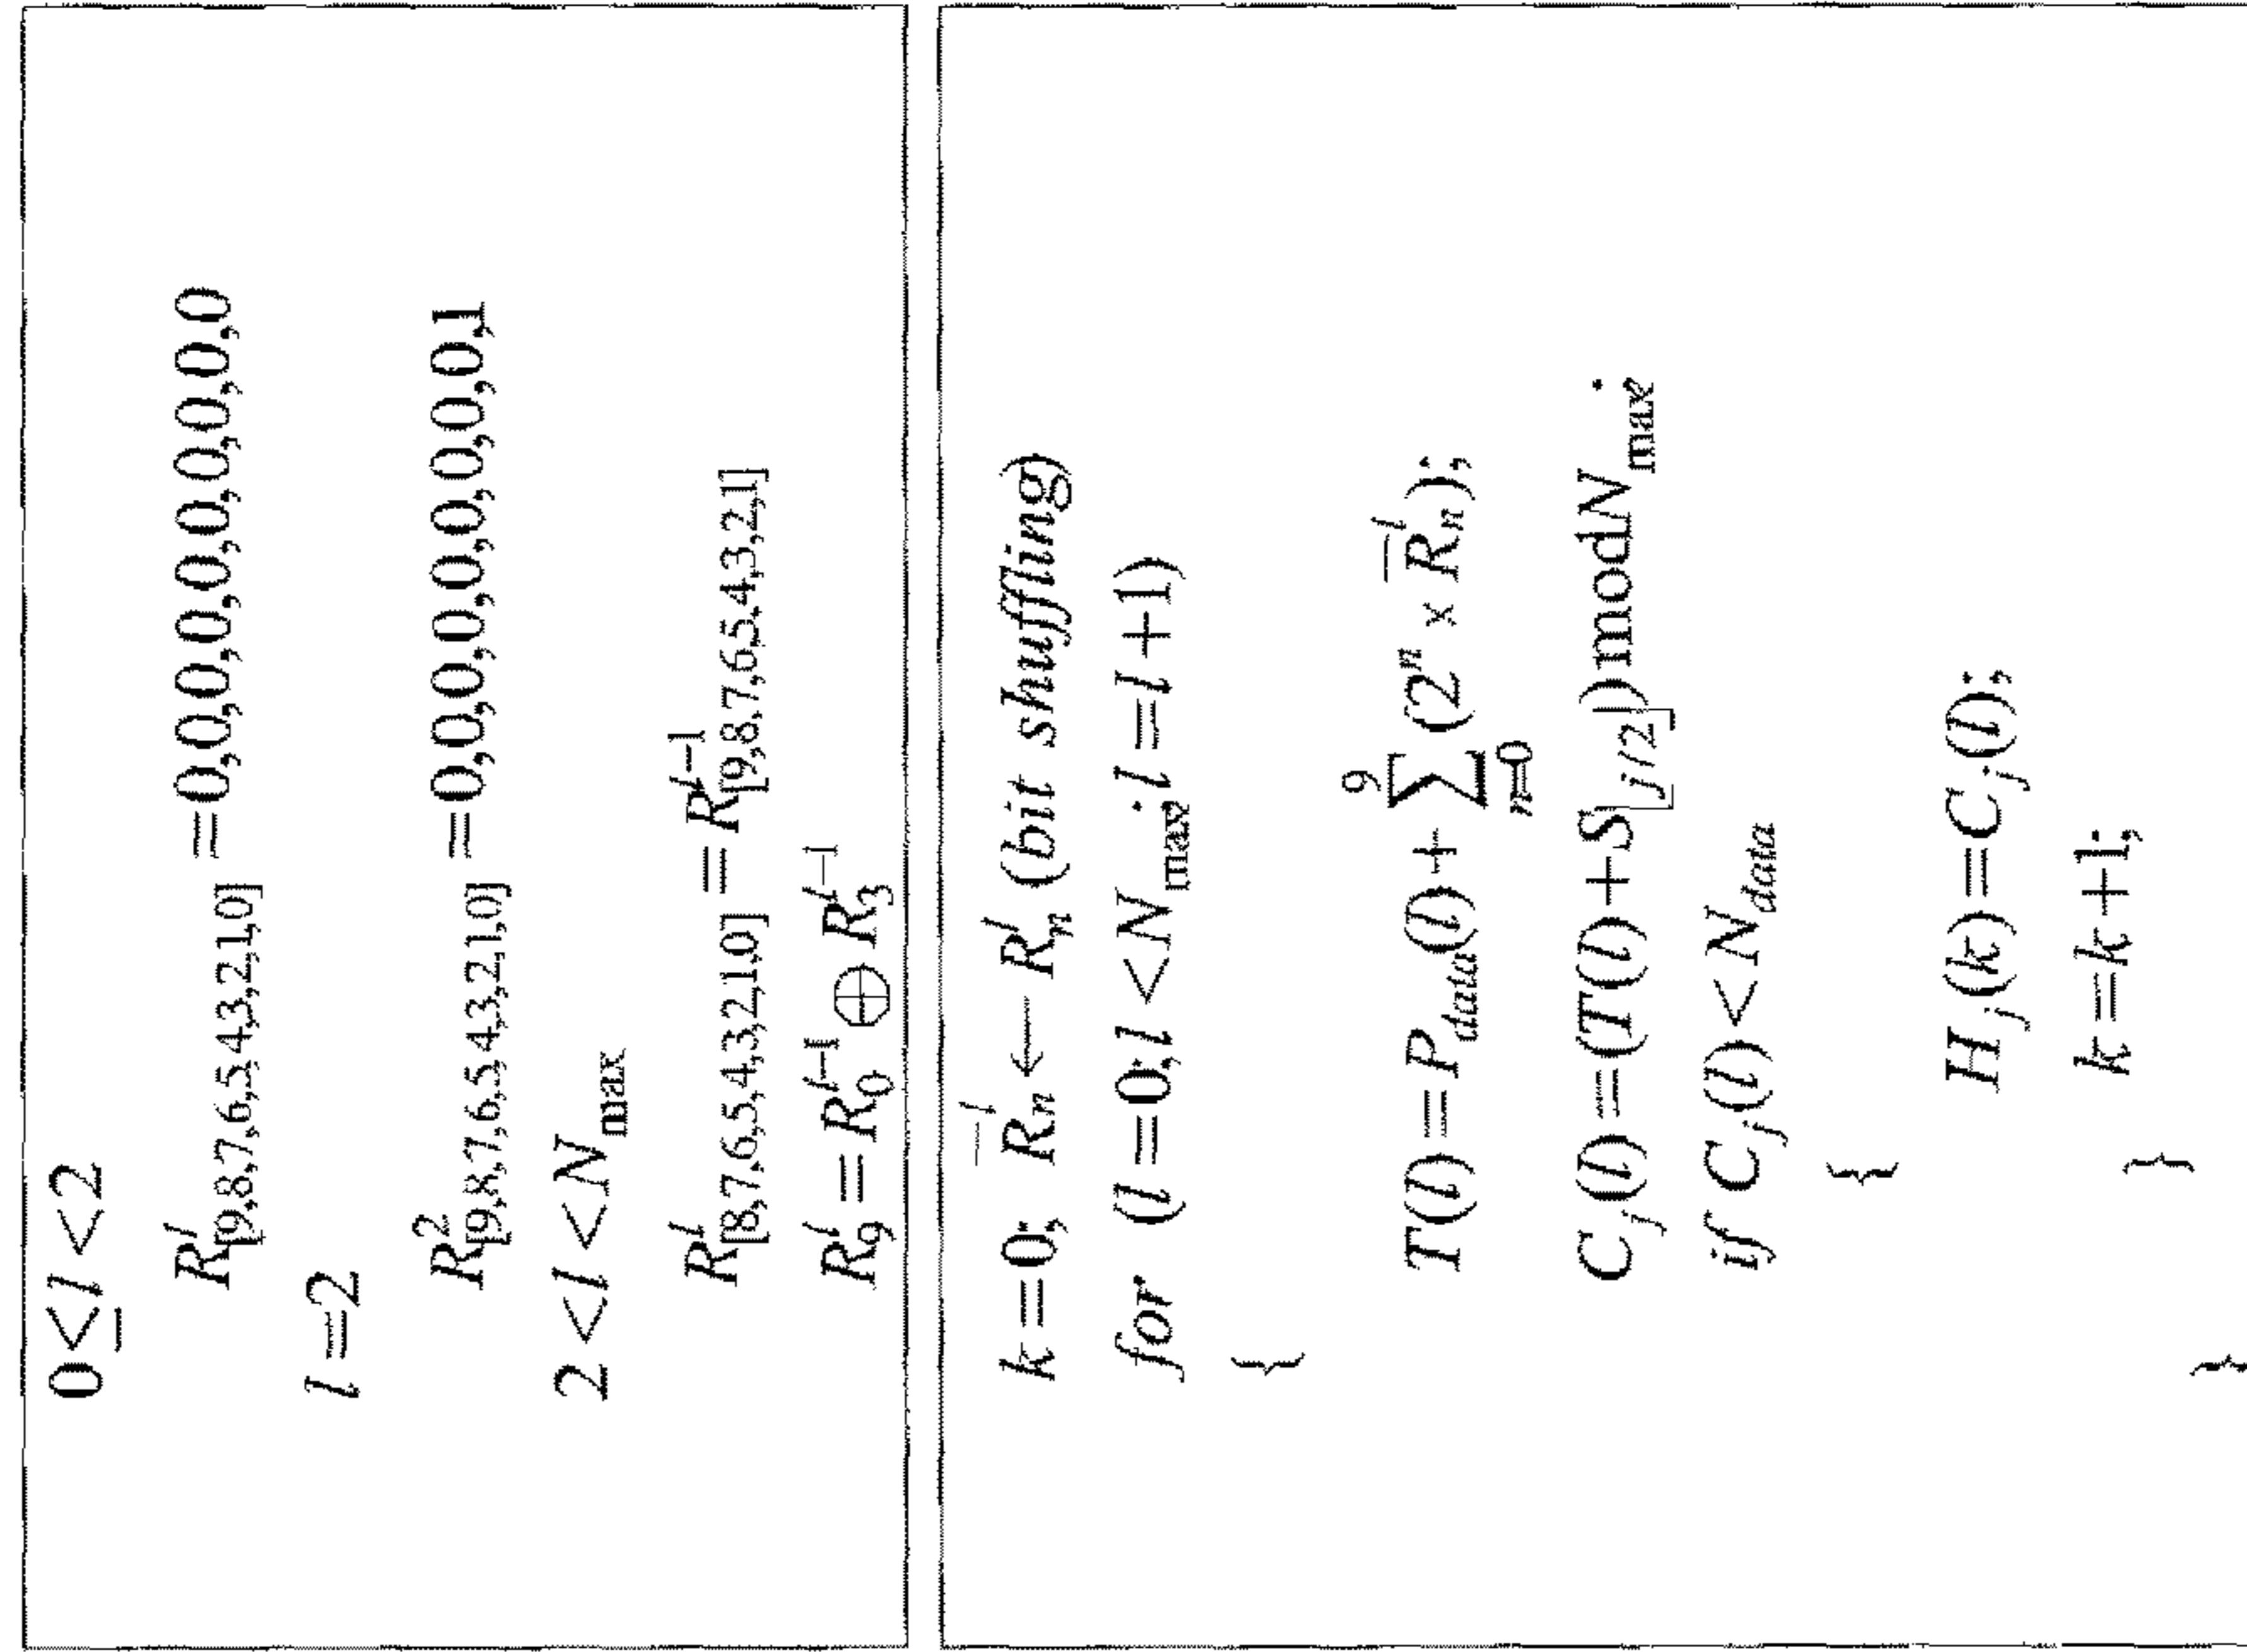 0≤l<2
R^l_[9,8,7,6,5,4,3,2,1,0] =0,0,0,0,0,0,0,0,0,0
l=2
R^2_[9,8,7,6,5,4,3,2,1,0] =0,0,0,0,0,0,0,0,0,1
2<l<N_max
R^l_[8,7,6,5,4,3,2,1,0] =R^{l-1}_[9,8,7,6,5,4,3,2,1]
R^l_9=R^{l-1}_0⊕R^{l-1}_3
k=0; R̄^l_n←R^l_n (bit shuffling)
for (l=0;l<N_max;l=l+1)
{
T(l)=P_data(l)+∑_{n=0}^{9}(2^n×R̄^l_n);
C_j(l)=(T(l)+S_⌊j/2⌋)modN_max;
if C_j(l)<N_data
{
H_j(k)=C_j(l);
k=k+1;
}
}